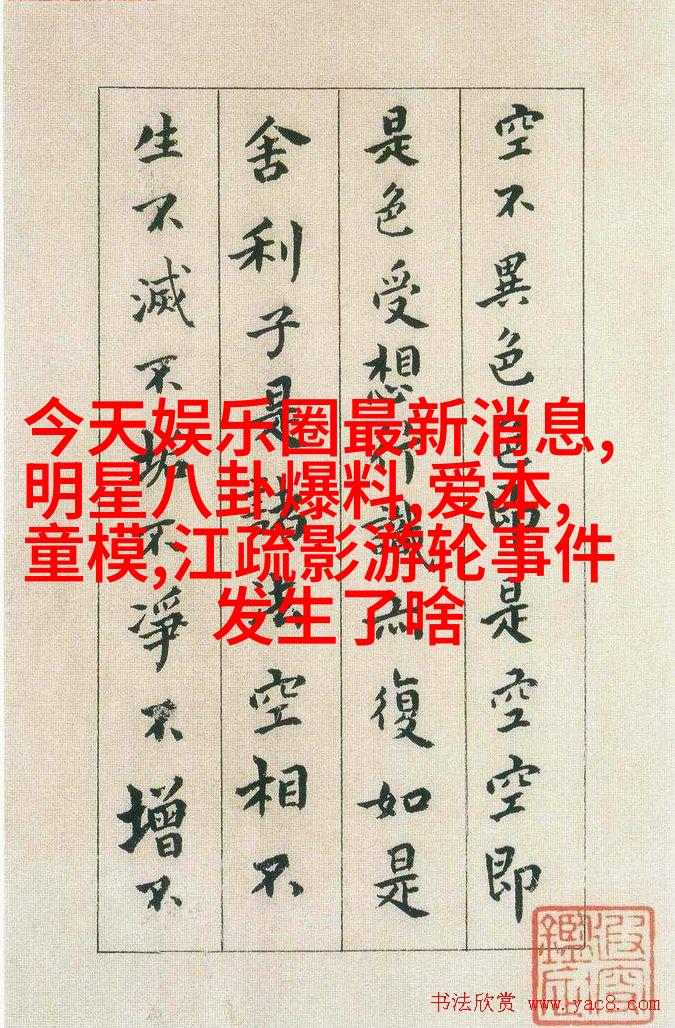 空不異色色即是空空即
是色受想行識亦復如是
舍利子是諸法空相不
生不滅不垢不淨不增不
今天娱乐圈最新消息,
明星八卦爆料,爱本,
童模,江疏影游轮事件
发生了啥
书法欣赏 www.yac8.com